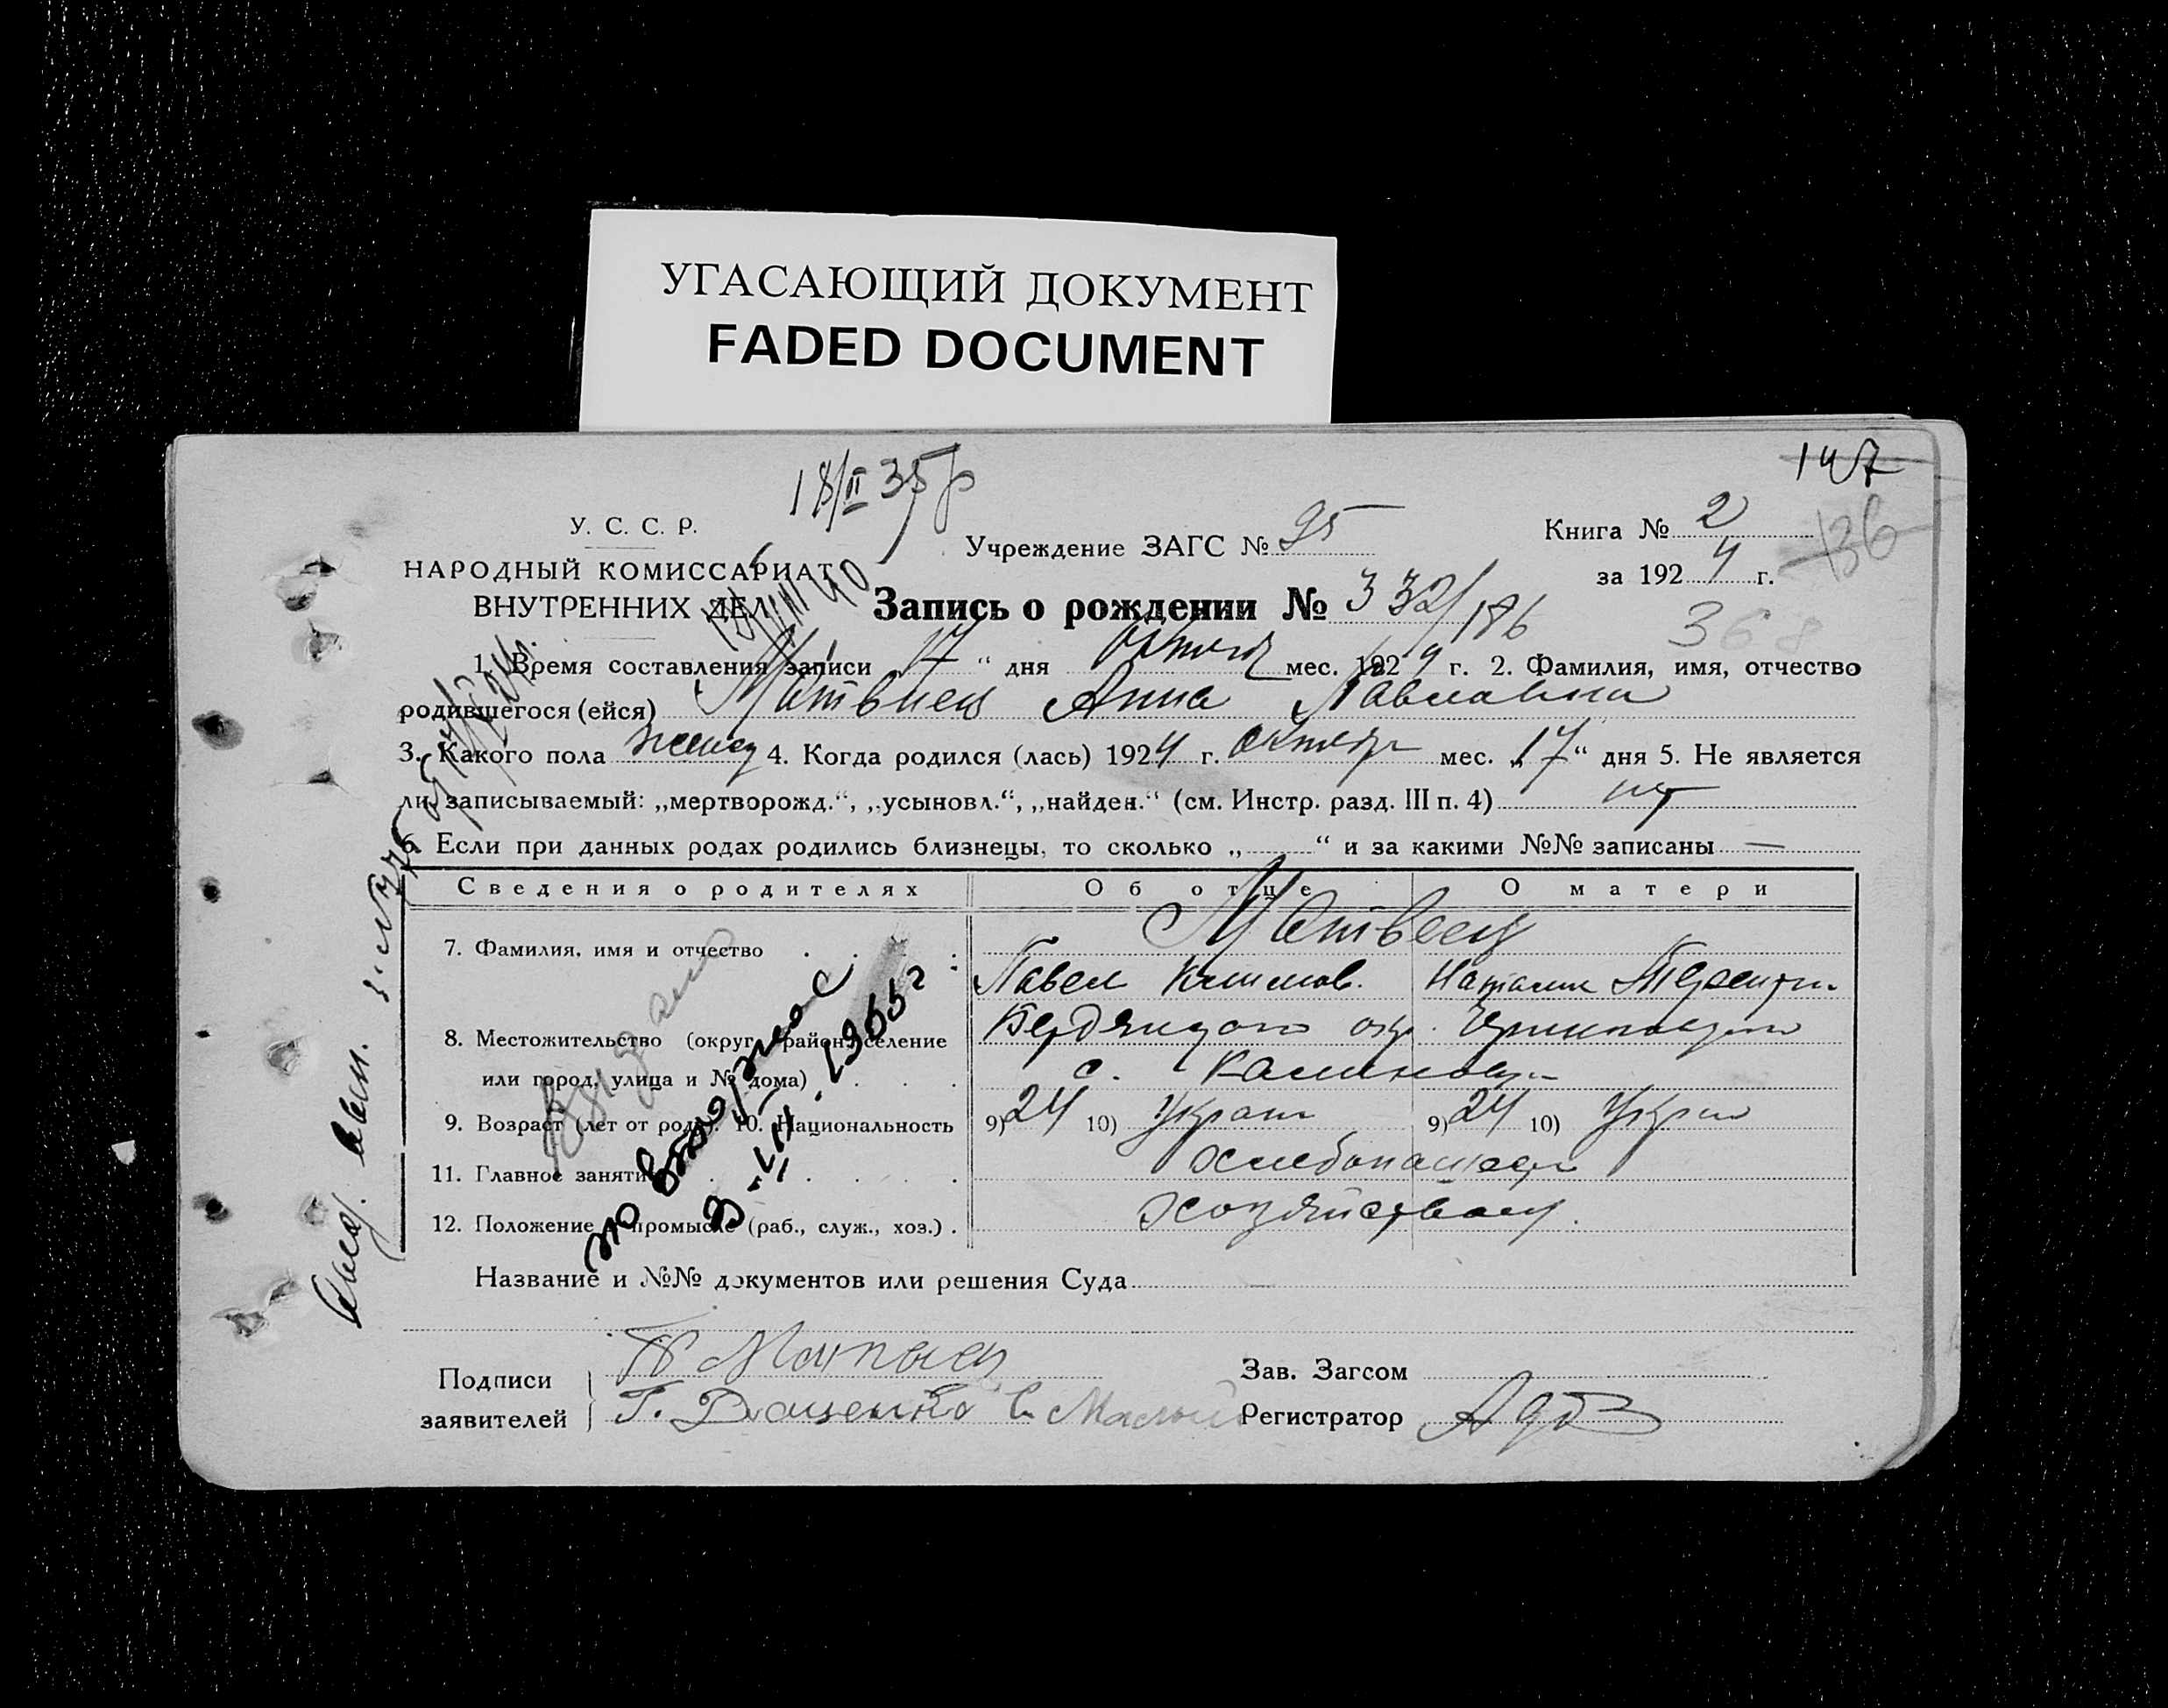 УГАСАЮЩИЙ ДОКУМЕНТ
FADED DOCUMENT
147
18/II 35 р
136
У. С. С. Р.
НАРОДНЫЙ КОМИССАРИАТ
ВНУТРЕННИХ ДЕЛ
Учреждение ЗАГС № 95
Книга № 2
за 1924 г.
Запись о рождении № 332/186
368
1. Время составления записи 17 " дня мес. 1924 г. 2. Фамилия, имя, отчество
родившегося (ейся) Матвиец Анна Павловна
3. Какого пола женск 4. Когда родился (лась) 1924 г. октябр мес. „17" дня 5. Не является
ли записываемый: „мертворожд.", „усыновл.", „найден." (см. Инстр. разд. III п. 4) нет
6. Если при данных родах родились близнецы, то сколько „ " и за какими №№ записаны —
Сведения о родителях Об отце О матери
7. Фамилия, имя и отчество Матвеец
Павел Климов. Наталия Терент.
8. Местожительство (округ, район, селение
или город, улица и № дома)
Бердянского окр.
с.
9. Возраст (лет от роду). 10. Национальность 9) 24 10) Украин 9) 24 10) Украин
11. Главное занятие хлебопашест
12. Положение в промысле (раб., служ., хоз.)
Выдано
повторное
3-III-1965 г
Название и №№ документов или решения Суда
Подписи
заявителей
П Матвиец
Г. Доценко
Зав. Загсом
Регистратор